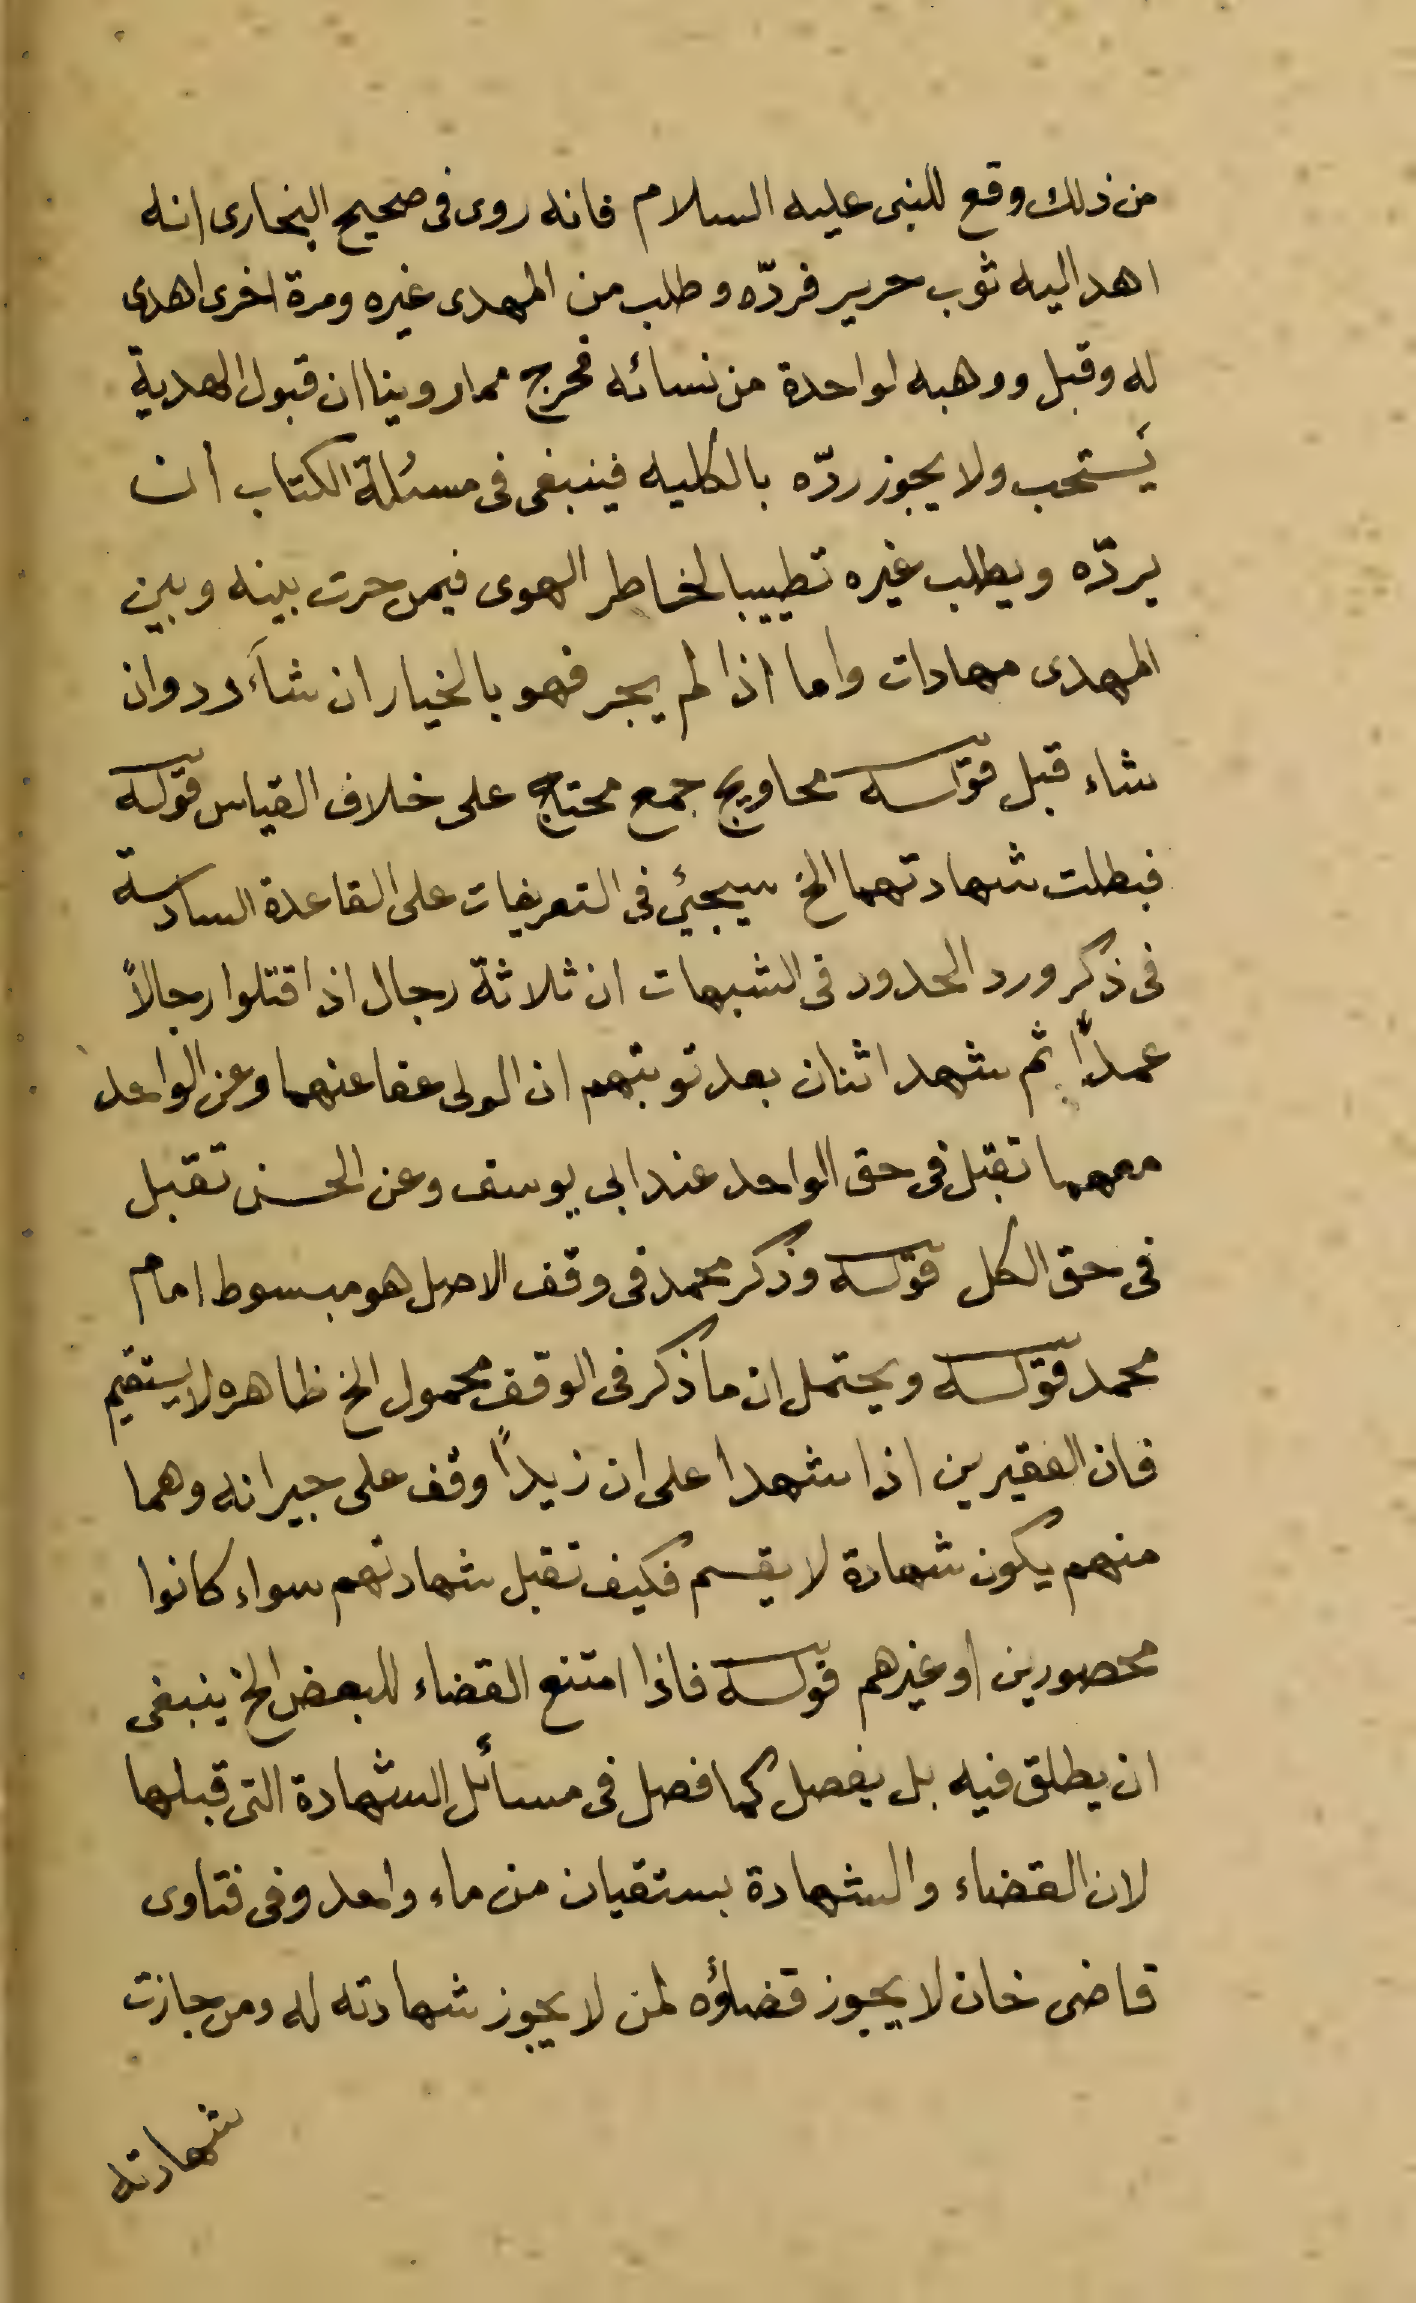 من ذلك وقع للنبى عليه السلام فانه روى فى صحيح البخارى انه
اهد اليه ثوب حرير فردّه و طلب من المهدى غيره ومرة اخرى اهدى
له وقبل ووهبه لواحدة من نسائه فخرج مما روينا ان قبول الهدية
يَستحب ولا يجوز ردّه بالكليه فينبغى فى مسئلة الكتاب أن
يردّه ويطلب غيره تطييبا لخاطر الهوى فيمن جرت بينه وبين
المهدى مهادات واما اذا لم يجر فهو بالخيار ان شاَء رد وان
شاء قبل قوله محاويج جمع محتاج على خلاف القياس قوله
فبطلت شهادتهما الخ سيجئ فى التعريفات على القاعدة السادسة
فى ذكر ورد الحدود فى الشبهات ان ثلاثة رجال اذا قتلوا رجالاً
عمداً ثم شهد اثنان بعد توبتهم ان الولى عفا عنهما وعن الواحد
معهما تقبل فى حق الواحد عند ابى يوسف وعن الحسن تقبل
فى حق الكل قوله وذكر محمد فى وقف الاصل هو مبسوط امام
محمد قوله ويحتمل ان ما ذكر فى الوقف محمول الخ ظاهره لا يستقيم
فان الفقيرين اذا شهدا على ان زيداً وقف على جيرانه وهما
منهم يكون شهادة لا يقسم فكيف تقبل شهادتهم سواء كانوا
محصورين او غيرهم قوله فاذا امتنع القضاء للبعض الخ ينبغى
ان يطلق فيه بل يفصل كما فصل فى مسأئل الشهادة التى قبلها
لان القضاء والشهادة يستقيان من ماء واحد وفى فتاوى
قاضى خان لا يجوز قضاؤه لمن لا يجوز شهادته له ومن جازت
شهادته